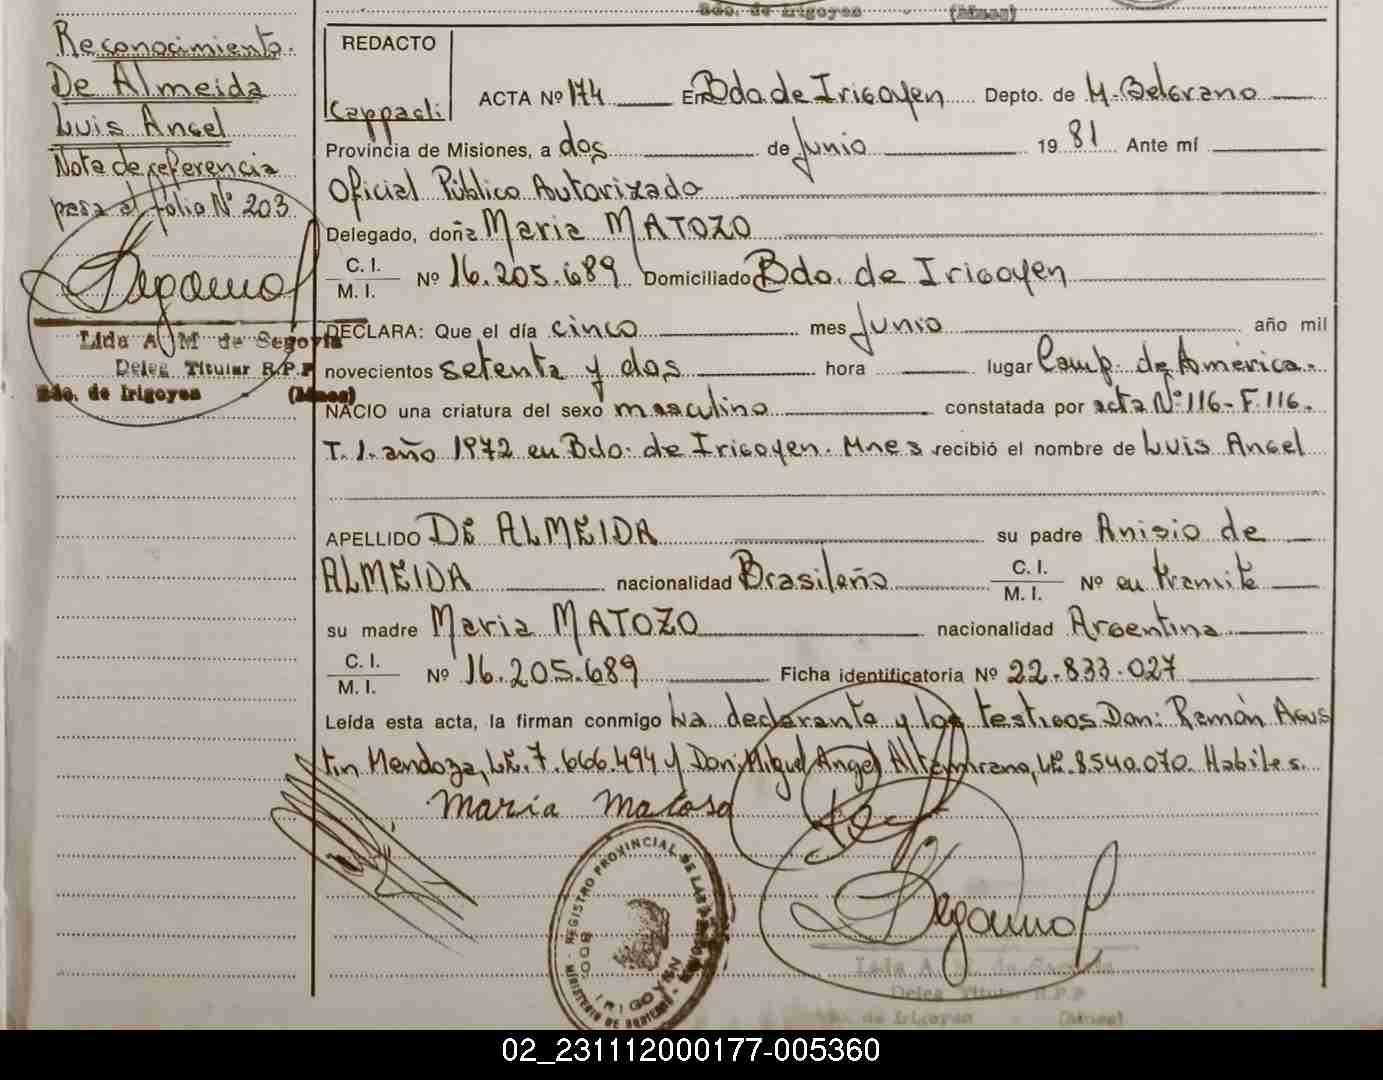 Bdo. de Irigoyen - (Mnes)
Reconocimiento.
De Almeida
Luis Angel
Nota de referencia
para al fólio Nº 203
Lida A. M de Segovia
Deleg Titular R.P.P
Bdo. de Irigoyen - (Mnes)
REDACTO
Cappacli
ACTA Nº 174 En Bdo. de Irigoyen Depto. de M. Belgrano
Provincia de Misiones, a dos de Junio 19 81 Ante mí
Oficial Público Autorizado
Delegado, doña Maria MATOZO
C. I.
M. I. Nº 16.205.689 Domiciliado Bdo. de Irigoyen
DECLARA: Que el día cinco mes Junio año mil
novecientos setenta y dos hora lugar Camp. de América.-
NACIO una criatura del sexo masculino constatada por acta Nº 116- F. 116.
T. 1. año 1972 en Bdo. de Irigoyen. Mnes recibió el nombre de Luis Angel
APELLIDO DE ALMEIDA su padre Anisio de
ALMEIDA nacionalidad Brasileña C. I.
M. I. Nº en tramite
su madre Maria MATOZO nacionalidad Argentina
C. I.
M. I. Nº 16.205.689 Ficha identificatoria Nº 22.833.027
Leída esta acta, la firman conmigo la declarante y los testigos Don: Ramón Agus
tin Mendoza, LE. 7.666.494 y Don: Miguel Angel Altamirano, LE. 8.540.070. Habiles.
Maria Matoso
REGISTRO PROVINCIAL DE LAS PERSONAS
MINISTERIO DE GOBIERNO
IRIGOYEN
Lida A. M. de Segovia
Deleg Titular R.P.P
Bdo. de Irigoyen (Mnes)
02_231112000177-005360